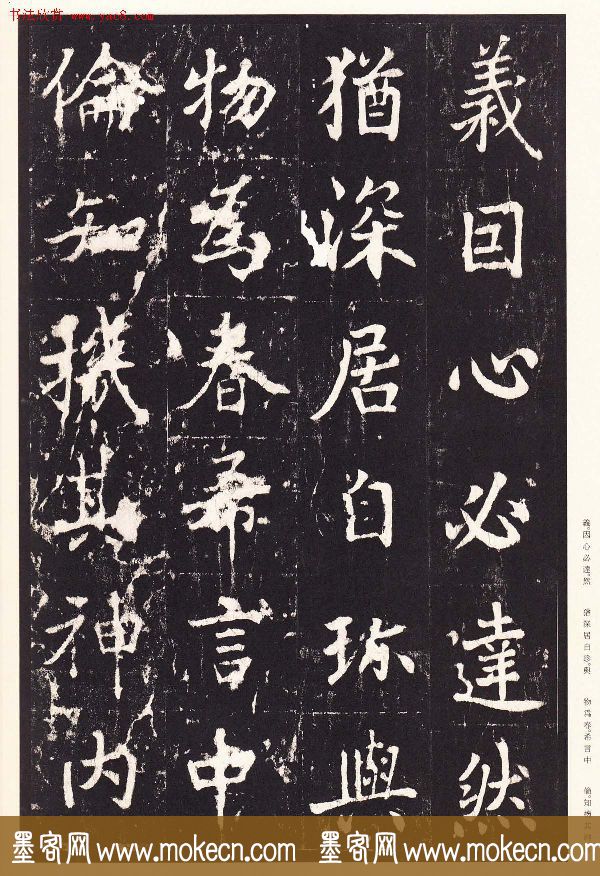 书法欣赏 www.yac8.com
義因心必達然
猶深居自珍與
物為春希言中
倫知機其神內
義因心必達然
猶深居自珍與
物為春希言中
倫知機其
墨客网www.mokecn.com 墨客网www.mokecn.com